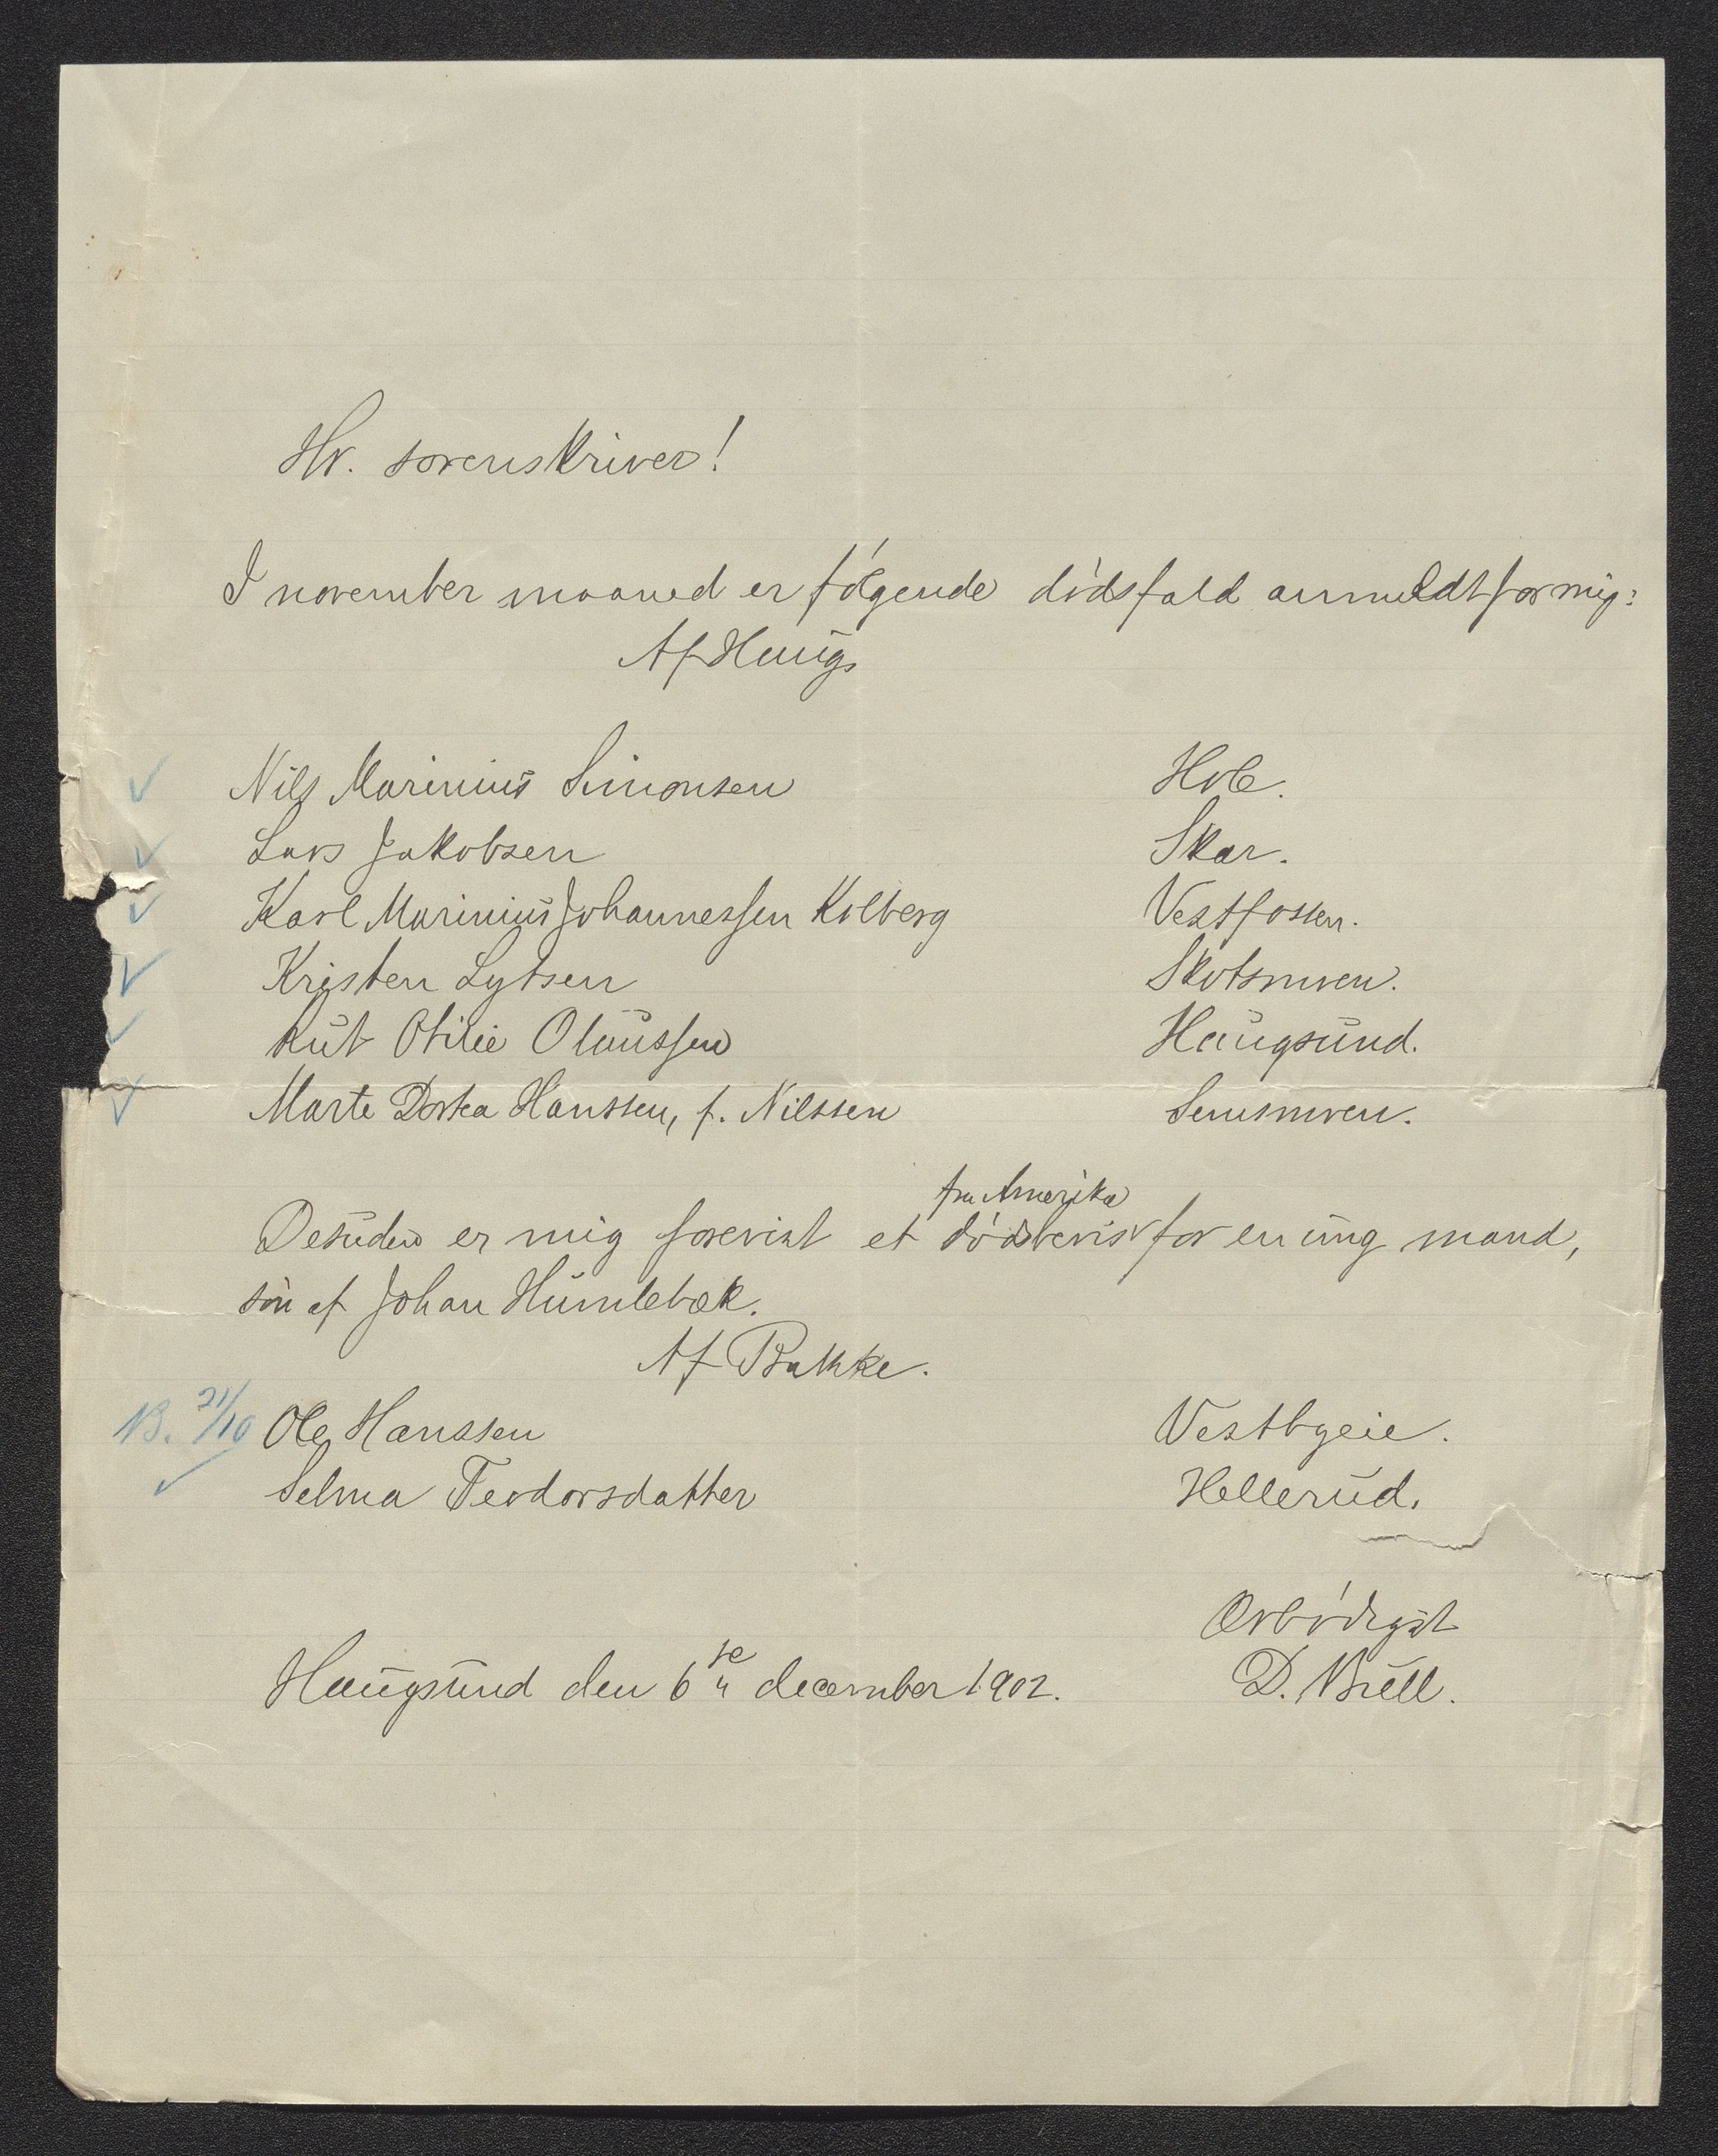 Hr. sorenskriver!
I november maaned er følgende dødsfald anmeldt for mig:
Af Haugs
Nils Marinius Simonsen Hole.
Lars Jakobsen Skar.
Karl Marinius Johannessen Kolberg Vestfossen.
Kristen Lytsen Skotsmoen.
Rut Otilie Olaussen Haugsund.
Marte Dortea Hanssen, f. Nilssen Semsmoen.
fra Amerika
Desuden er mig forevist et dødsbevis for en ung mand,
søn af Johan Humlebæk.
Af Bakke.
B. 21/10 Ole Hanssen Vestbyeie.
Selma Teodorsdatter Hellerud.
Ærbødigst
Haugsund den 6te december 1902. D. Bull.